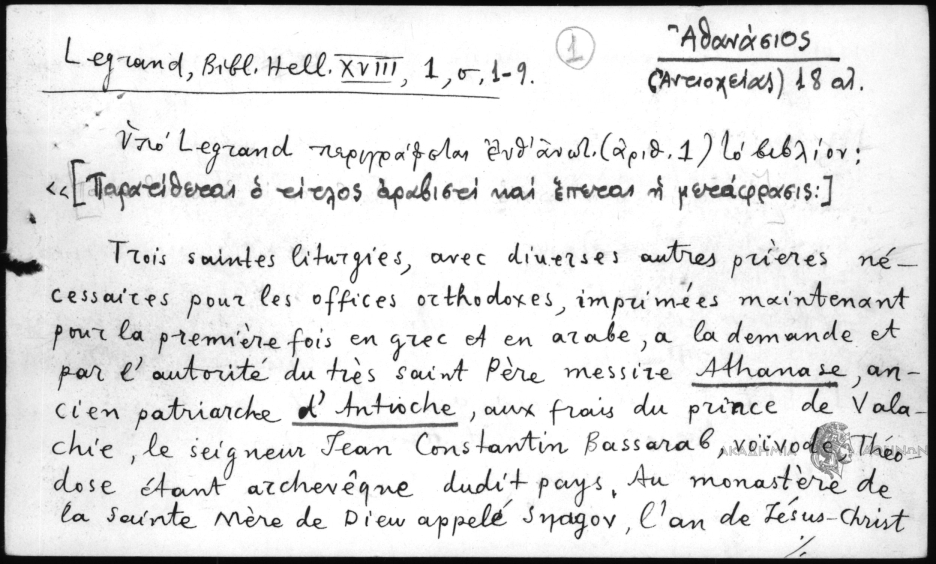 Legrand, Bibl. Hell. XVIII, 1, σ. 1-9.
1
Ἀθανάσιος
(Ἀντιοχείας) 18 αἰ.
Ὑπὸ Legrand περιγράφεται ἐνθ' ἀνωτ. (ἀριθ. 1) τὸ βιβλίον:
«[Παρατίθεται ὁ τίτλος ἀραβιστὶ καὶ ἕπεται ἡ μετάφρασις:]
Trois saintes liturgies, avec diverses autres prières né-
cessaires pour les offices orthodoxes, imprimées maintenant
pour la première fois en grec et en arabe, a la demande et
par l'autorité du très saint Père messire Athanase, an-
cien patriarche d'Antioche, aux frais du prince de Vala-
chie, le seigneur Jean Constantin Bassarab, voïvode, Théo-
dose étant archevêque dudit pays. Au monastère de
la Sainte Mère de Dieu appelé Synagov, l'an de Jésus-Christ
./.
ΑΚΑΔΗΜΙΑ ΑΘΗΝΩΝ